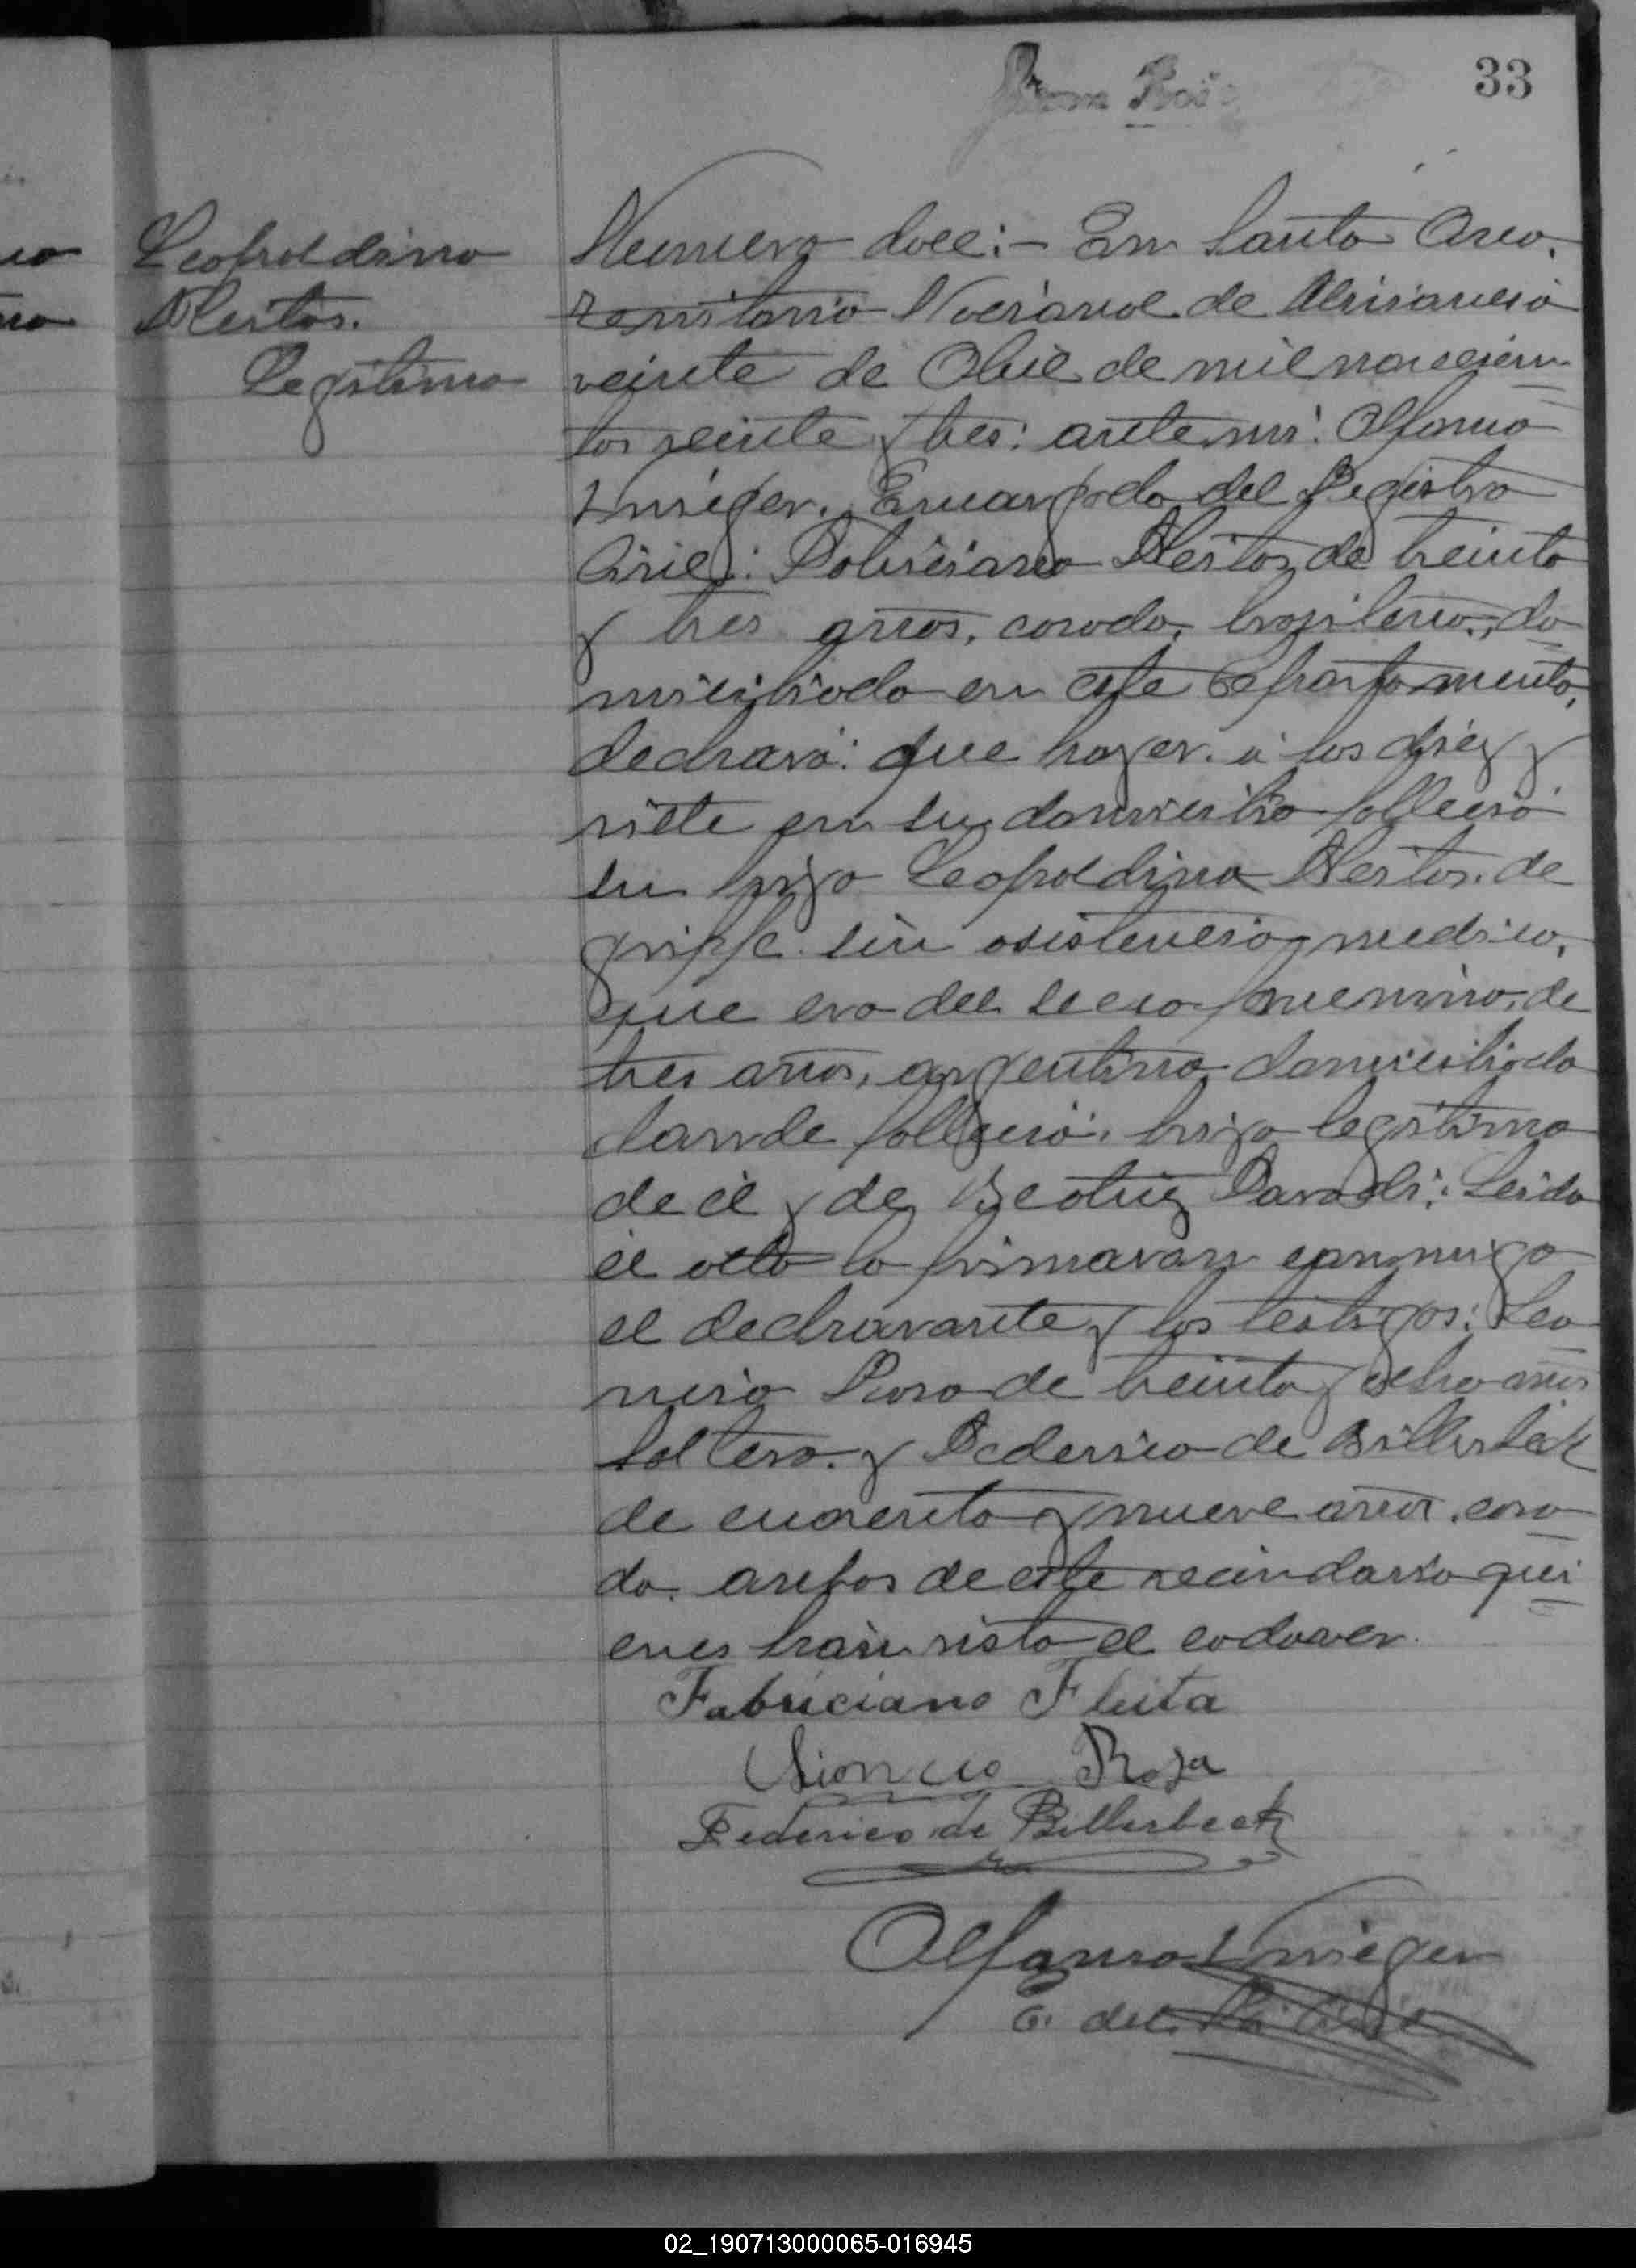 33
Leopoldina
Fleitas.
Legitima
Numero doce:- En Santa Ana,
Territorio Nacional de Misiones a
veinte de Abril de mil novecien-
tos veinte y tres: ante mi: Alfonso
Encargado del Registro
Civil: Fabriciano Fleitas de treinta
y tres años, casado, brasilero, do-
miciliado en este departamento,
declaró: que hayer a las diez y
siete en su domicilio falleció
su hija Leopoldina Fleitas de
grippe sin asistencia medica,
que era del secso femenino, de
tres años, argentina domiciliada
donde falleció, hija legitima
de él y de Beatriz Leida
el acta la firmaron conmigo
el declarante y los testigos: Leo-
ncio Rosa de treinta y ocho años
soltero y Federico de Billerbeck
de cuarenta y nueve años, casa-
do, anbos de este vecindario qui-
enes han visto el cadaver.
Fabriciano Fleita
Lioncio Rosa
Federico de Billerbeck
Alfonso
E. del R. Civil
02_190713000065-016945